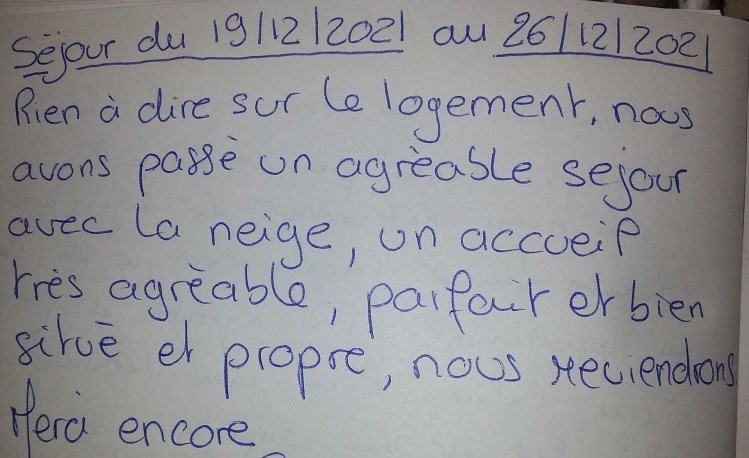 Séjour du 19/12/2021 au 26/12/2021
Rien à dire sur le logement, nous
avons passè un agrèable sejour
avec la neige, un accueil
très agrèable, parfait et bien
situè et propre, nous reviendrons
Merci encore